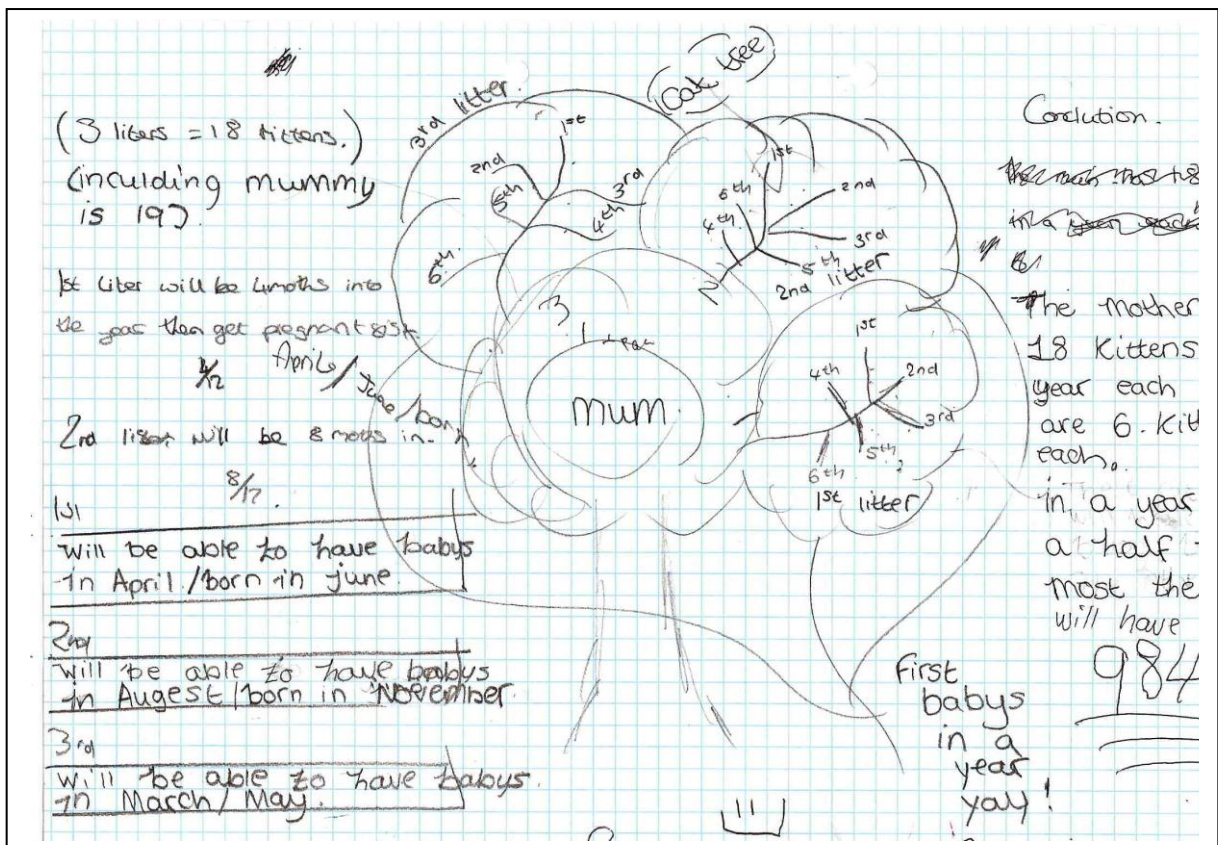 (3 liters = 18 kittens.)
(inculding mummy
is 19).
1st liter will be 4moths into
the year then get pregnant
4/12
April/
June/born
2nd liter will be 8 moths in.
8/12.
1st
will be able to have babys
in April./born in june.
2nd
will be able to have babys
in Augest/born in November.
3rd
will be able to have babys.
in March/May.
Cat tree
3rd litter.
1st
2nd
3rd
4th
5th
6th
3
1st
2nd
3rd
4th
5th
6th
2nd litter
2
mum.
1st
2nd
3rd
4th
5th
6th
1st litter
Conclution.
in a
The mother
18 Kittens
year each
are 6. Kit
each.
in a year
a half
most the
will have
984
First
babys
in a
year
yay!